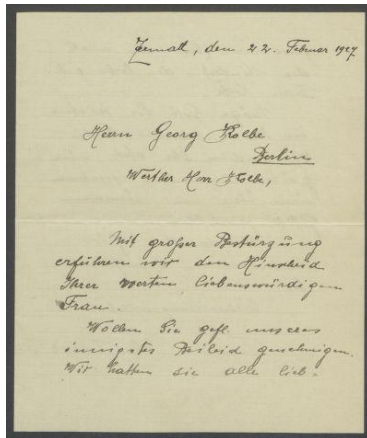 Zermatt, den 22. Februar 1927
Herrn Georg Kolbe
Berlin
Werther Herr Kolbe,
Mit großer Bestürzung
erfuhren wir den Hinscheid
Ihrer werten, liebenswürdigen
Frau.
Wollen Sie gefl. unseres
innigstes Beileid genehmigen.
Wir hatten sie alle lieb.